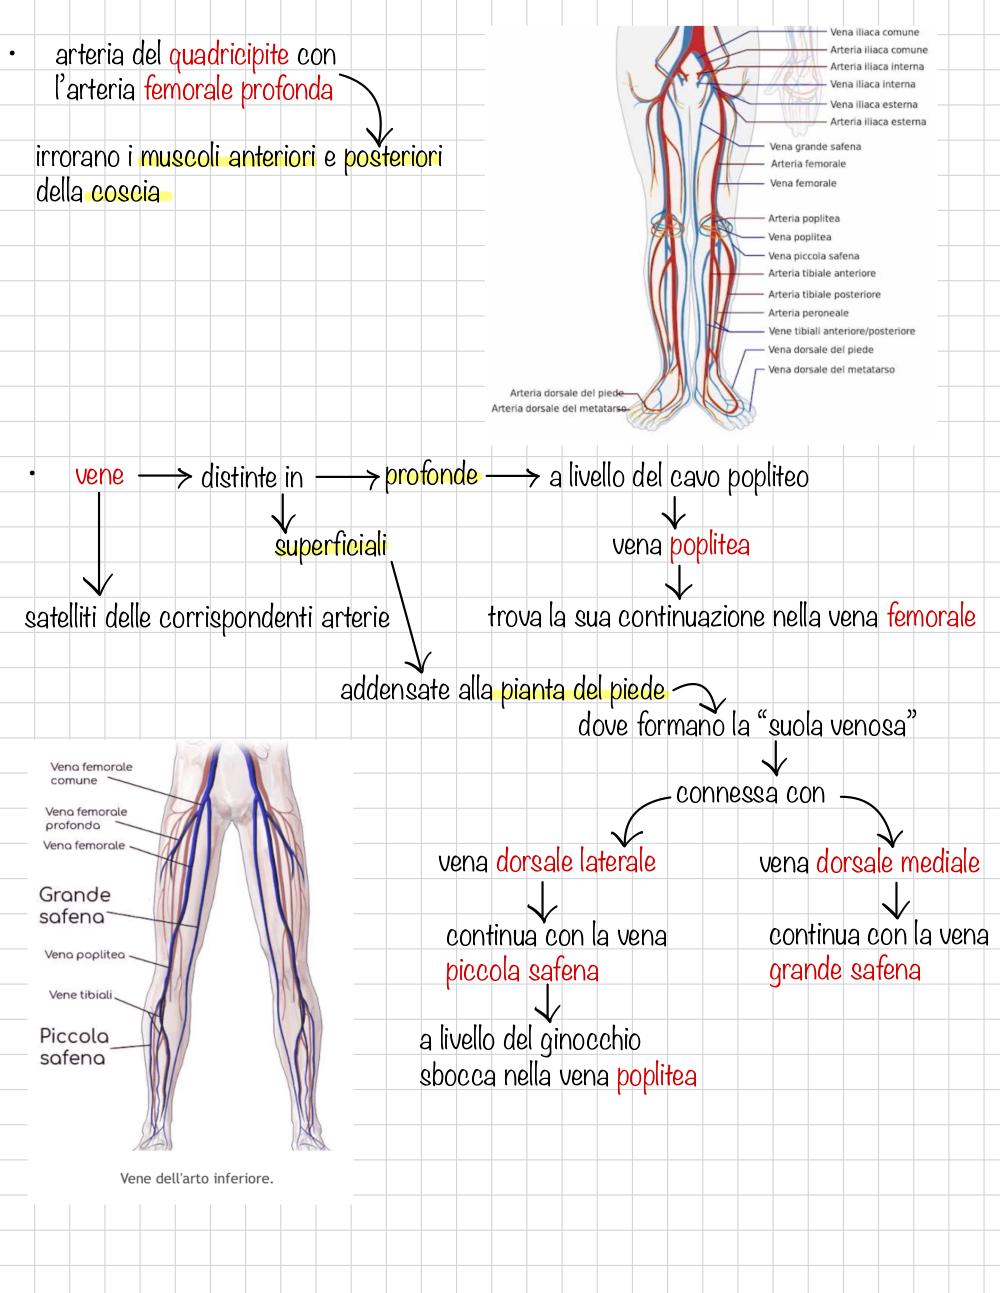 • arteria del quadricipite con
l'arteria femorale profonda
irrorano i muscoli anteriori e posteriori
della coscia
Vena iliaca comune
Arteria iliaca comune
Arteria iliaca interna
Vena iliaca interna
Vena iliaca esterna
Arteria iliaca esterna
Vena grande safena
Arteria femorale
Vena femorale
Arteria poplitea
Vena poplitea
Vena piccola safena
Arteria tibiale anteriore
Arteria tibiale posteriore
Arteria peroneale
Vene tibiali anteriore/posteriore
Vena dorsale del piede
Vena dorsale del metatarso
Arteria dorsale del piede
Arteria dorsale del metatarso
• vene → distinte in → profonde → a livello del cavo popliteo
superficiali
vena poplitea
satelliti delle corrispondenti arterie
trova la sua continuazione nella vena femorale
addensate alla pianta del piede
dove formano la “suola venosa”
connessa con
vena dorsale laterale
vena dorsale mediale
continua con la vena
piccola safena
continua con la vena
grande safena
a livello del ginocchio
sbocca nella vena poplitea
Vena femorale
comune
Vena femorale
profonda
Vena femorale
Grande
safena
Vena poplitea
Vene tibiali
Piccola
safena
Vene dell'arto inferiore.